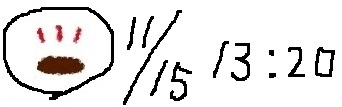 11/15 13:20